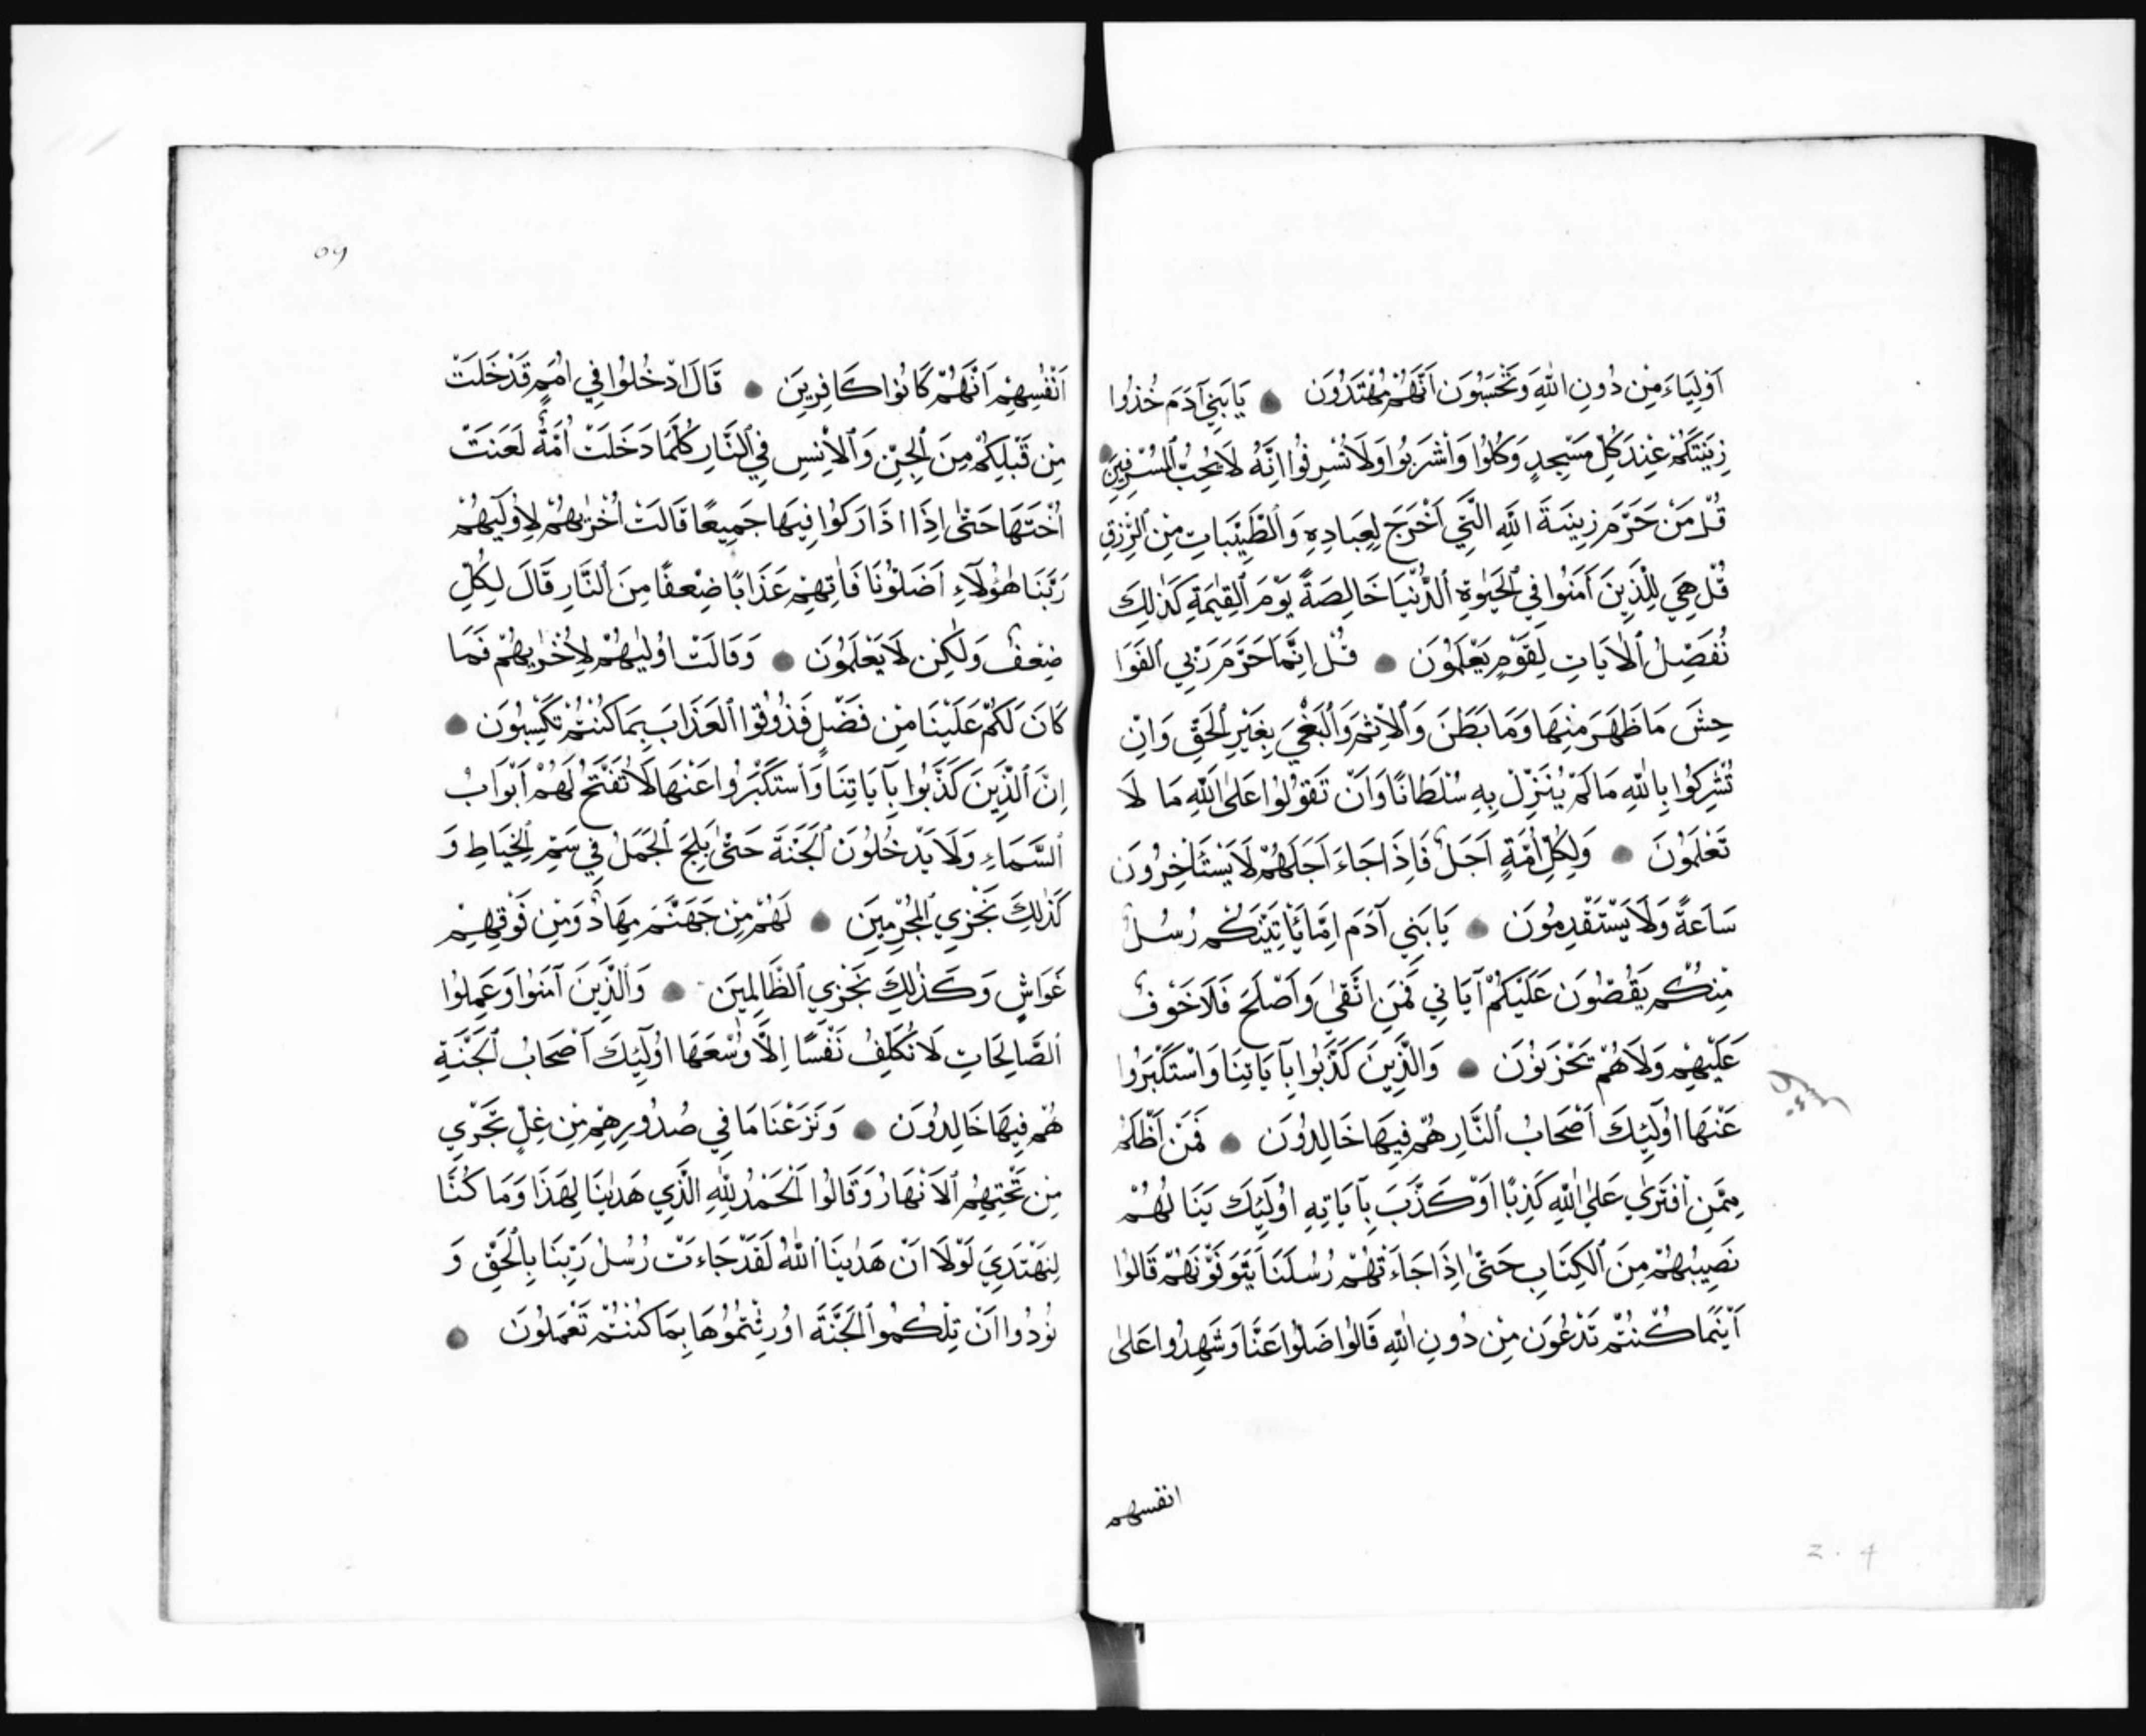 اَوْلِيَاءَ مِنْ دُونِ اللّٰهِ وَتَحْسَبُونَ اَنَّهُمْ مُهْتَدُونَ ● يَا بَنِي آدَمَ خُذُوا
زِينَتَكُمْ عِنْدَ كُلِّ مَسْجِدٍ وَكُلُوا وَاشْرَبُوا وَلَا تُسْرِفُوا اِنَّهُ لَا يُحِبُّ الْمُسْرِفِينَ ●
قُلْ مَنْ حَرَّمَ زِينَةَ اللّٰهِ الَّتِي اَخْرَجَ لِعِبَادِهِ وَالطَّيِّبَاتِ مِنَ الرِّزْقِ
قُلْ هِيَ لِلَّذِينَ اٰمَنُوا فِي الْحَيٰوةِ الدُّنْيَا خَالِصَةً يَوْمَ الْقِيٰمَةِ كَذٰلِكَ
نُفَصِّلُ الْاٰيَاتِ لِقَوْمٍ يَعْلَمُونَ ● قُلْ اِنَّمَا حَرَّمَ رَبِّي الْفَوَا
حِشَ مَا ظَهَرَ مِنْهَا وَمَا بَطَنَ وَالْاِثْمَ وَالْبَغْيَ بِغَيْرِ الْحَقِّ وَاَنْ
تُشْرِكُوا بِاللّٰهِ مَا لَمْ يُنَزِّلْ بِهِ سُلْطَانًا وَاَنْ تَقُولُوا عَلَى اللّٰهِ مَا لَا
تَعْلَمُونَ ● وَلِكُلِّ اُمَّةٍ اَجَلٌ فَاِذَا جَاءَ اَجَلُهُمْ لَا يَسْتَأْخِرُونَ
سَاعَةً وَلَا يَسْتَقْدِمُونَ ● يَا بَنِي آدَمَ اِمَّا يَأْتِيَنَّكُمْ رُسُلٌ
مِنْكُمْ يَقُصُّونَ عَلَيْكُمْ آيَاتِي فَمَنِ اتَّقٰى وَاَصْلَحَ فَلَا خَوْفٌ
عَلَيْهِمْ وَلَا هُمْ يَحْزَنُونَ ● وَالَّذِينَ كَذَّبُوا بِآيَاتِنَا وَاسْتَكْبَرُوا
عَنْهَا اُولَٰئِكَ اَصْحَابُ النَّارِ هُمْ فِيهَا خَالِدُونَ ● فَمَنْ اَظْلَمُ
مِمَّنِ افْتَرٰى عَلَى اللّٰهِ كَذِبًا اَوْ كَذَّبَ بِآيَاتِهِ اُولَٰئِكَ يَنَالُهُمْ
نَصِيبُهُمْ مِنَ الْكِتَابِ حَتّٰى اِذَا جَاءَتْهُمْ رُسُلُنَا يَتَوَفَّوْنَهُمْ قَالُوا
اَيْنَمَا كُنْتُمْ تَدْعُونَ مِنْ دُونِ اللّٰهِ قَالُوا ضَلُّوا عَنَّا وَشَهِدُوا عَلٰى
انفسهم
2.4
٥٩
اَنْفُسِهِمْ اَنَّهُمْ كَانُوا كَافِرِينَ ● قَالَ ادْخُلُوا فِي اُمَمٍ قَدْ خَلَتْ
مِنْ قَبْلِكُمْ مِنَ الْجِنِّ وَالْاِنْسِ فِي النَّارِ كُلَّمَا دَخَلَتْ اُمَّةٌ لَعَنَتْ
اُخْتَهَا حَتّٰى اِذَا ادَّارَكُوا فِيهَا جَمِيعًا قَالَتْ اُخْرٰيهُمْ لِاُولٰيهُمْ
رَبَّنَا هٰؤُلَآءِ اَضَلُّونَا فَاٰتِهِمْ عَذَابًا ضِعْفًا مِنَ النَّارِ قَالَ لِكُلٍّ
ضِعْفٌ وَلٰكِنْ لَا يَعْلَمُونَ ● وَقَالَتْ اُولٰيهُمْ لِاُخْرٰيهُمْ فَمَا
كَانَ لَكُمْ عَلَيْنَا مِنْ فَضْلٍ فَذُوقُوا الْعَذَابَ بِمَا كُنْتُمْ تَكْسِبُونَ ●
اِنَّ الَّذِينَ كَذَّبُوا بِآيَاتِنَا وَاسْتَكْبَرُوا عَنْهَا لَا تُفَتَّحُ لَهُمْ اَبْوَابُ
السَّمَاءِ وَلَا يَدْخُلُونَ الْجَنَّةَ حَتّٰى يَلِجَ الْجَمَلُ فِي سَمِّ الْخِيَاطِ وَ
كَذٰلِكَ نَجْزِي الْمُجْرِمِينَ ● لَهُمْ مِنْ جَهَنَّمَ مِهَادٌ وَمِنْ فَوْقِهِمْ
غَوَاشٍ وَكَذٰلِكَ نَجْزِي الظَّالِمِينَ ● وَالَّذِينَ آمَنُوا وَعَمِلُوا
الصَّالِحَاتِ لَا نُكَلِّفُ نَفْسًا اِلَّا وُسْعَهَا اُولَٰئِكَ اَصْحَابُ الْجَنَّةِ
هُمْ فِيهَا خَالِدُونَ ● وَنَزَعْنَا مَا فِي صُدُورِهِمْ مِنْ غِلٍّ تَجْرِي
مِنْ تَحْتِهِمُ الْاَنْهَارُ وَقَالُوا الْحَمْدُ لِلّٰهِ الَّذِي هَدٰينَا لِهَذَا وَمَا كُنَّا
لِنَهْتَدِيَ لَوْلَا اَنْ هَدٰينَا اللّٰهُ لَقَدْ جَاءَتْ رُسُلُ رَبِّنَا بِالْحَقِّ وَ
نُودُوا اَنْ تِلْكُمُوا الْجَنَّةَ اُورِثْتُمُوهَا بِمَا كُنْتُمْ تَعْمَلُونَ ●